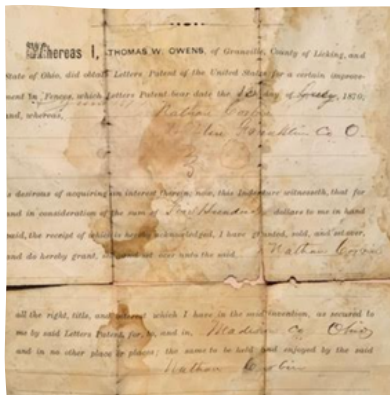 Whereas I, THOMAS W. OWENS, of Granville, County of Licking, and
State of Ohio, did obtain Letters Patent of the United States for a certain improve-
ment in Fences, which Letters Patent bear date the day of July, 1870,
and, whereas, Nathan Corbin
Franklin Co O.
is desirous of acquiring an interest therein; now, this Indenture witnesseth, that for
and in consideration of the sum of Hundred dollars to me in hand
paid, the receipt of which is hereby acknowledged, I have granted, sold, and set over,
and do hereby grant, sell and set over unto the said Nathan Corbin
all the right, title, and interest which I have in the said invention, as secured to
me by said Letters Patent, for, to, and in, Madison Co Ohio
and in no other place or places; the same to be held and enjoyed by the said
Nathan Corbin